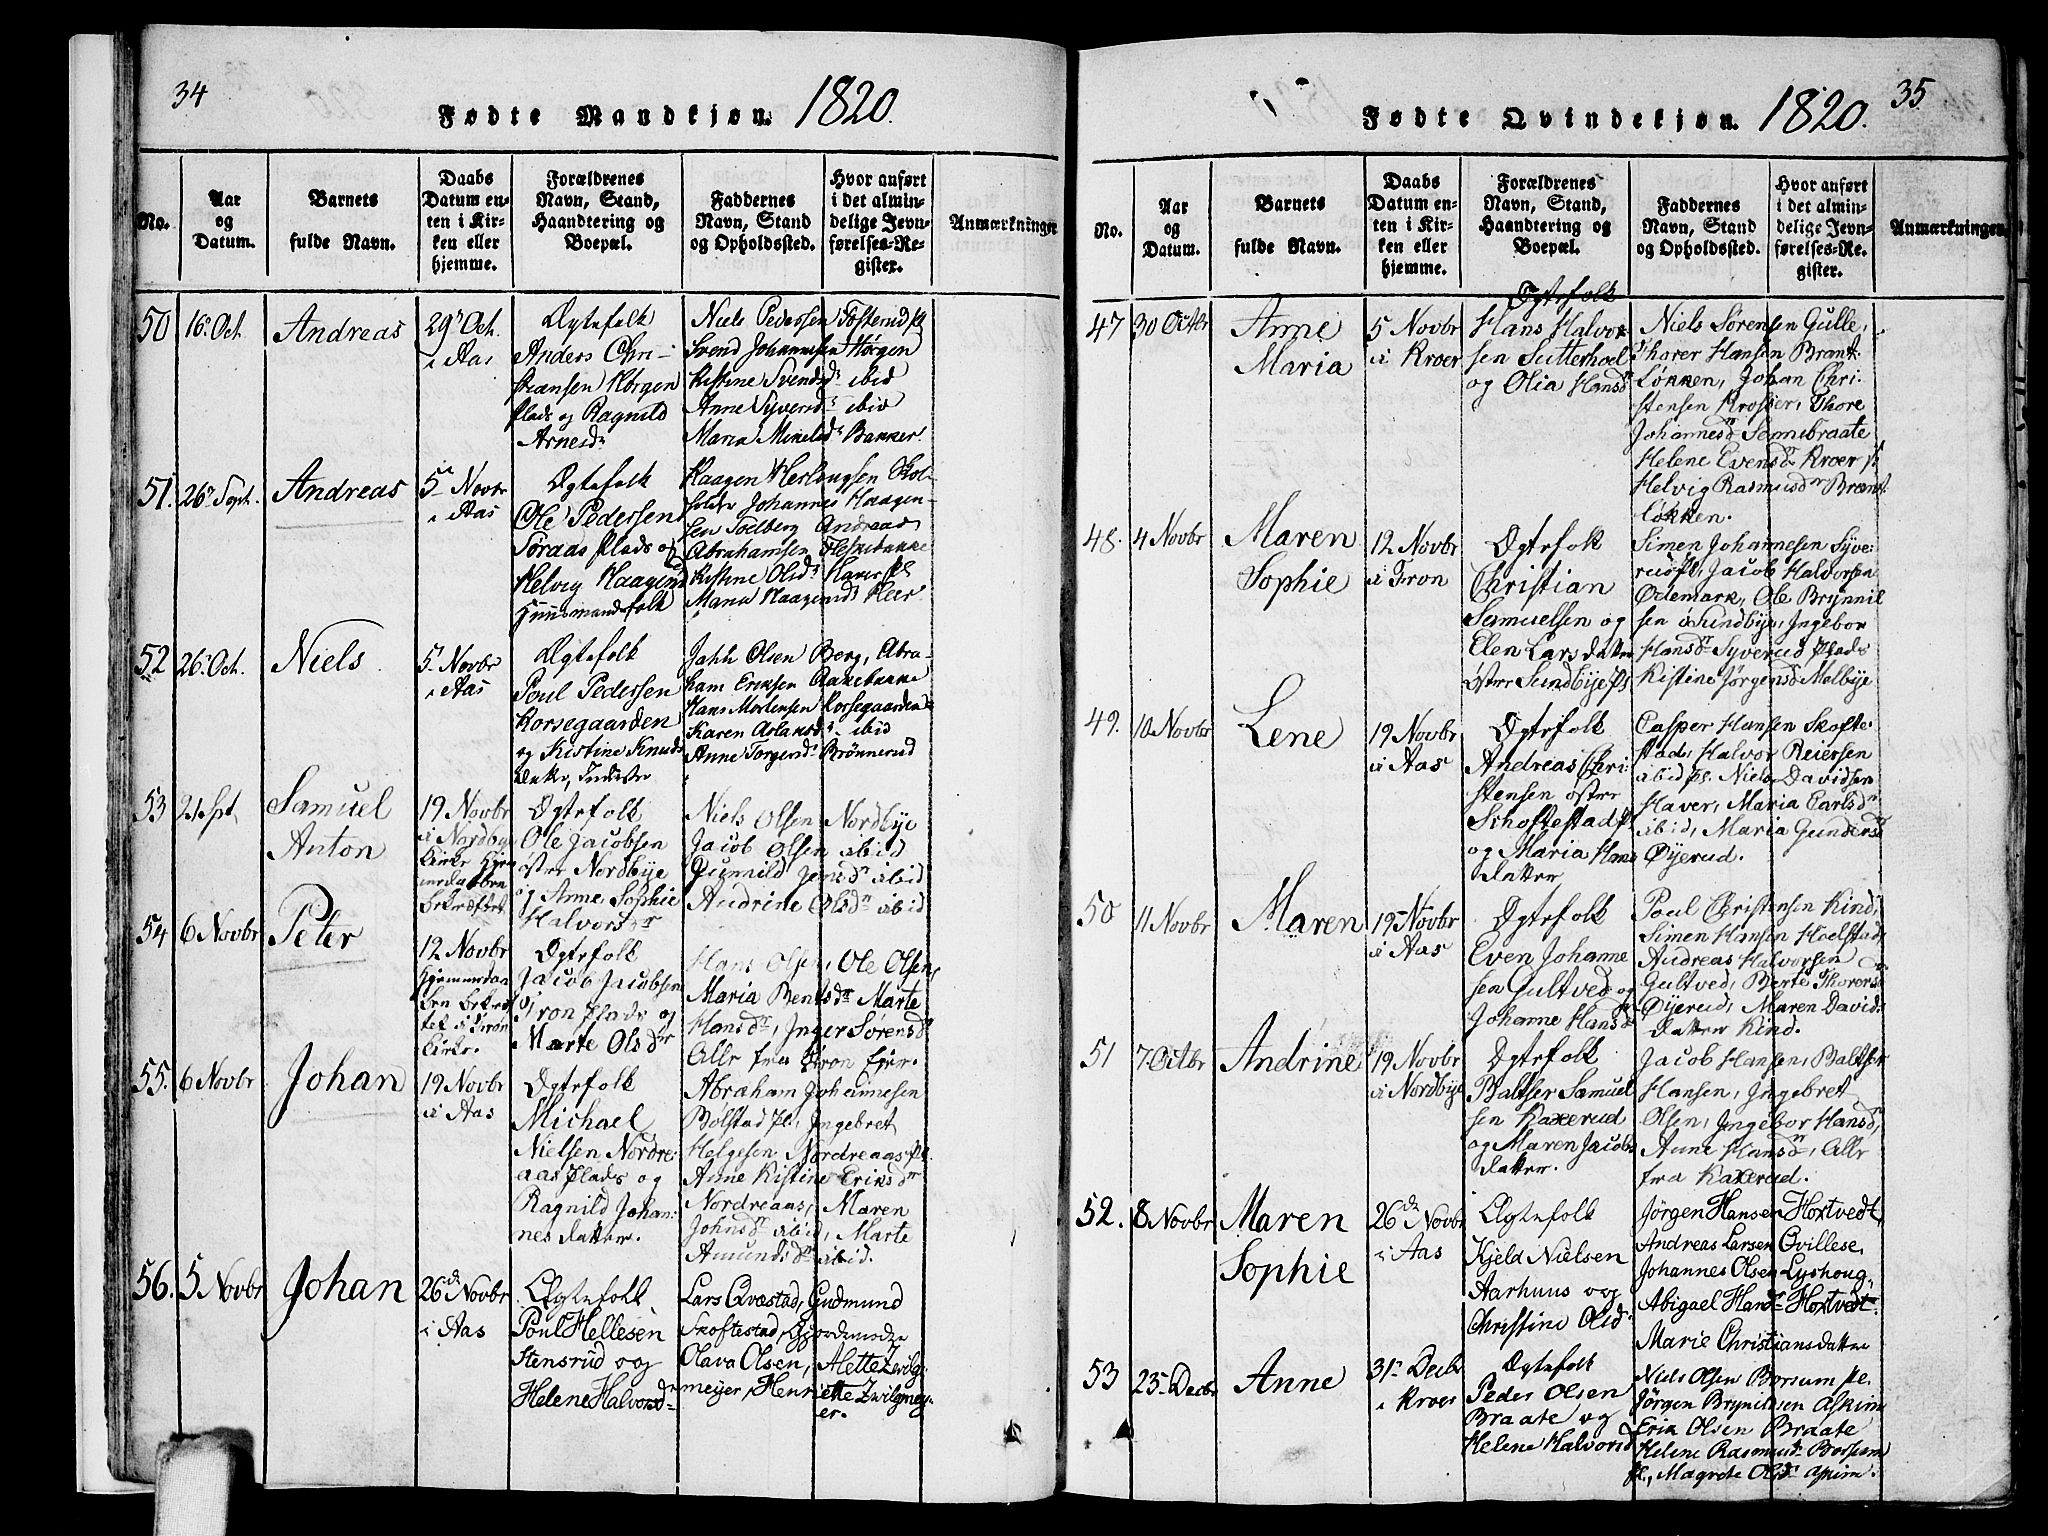 34
Fødte Mandkjøn. 1820.
No.
Aar
og
Datum.
Barnets
fulde Navn.
Daabs
Datum en-
ten i Kir-
ken eller
hjemme.
Forældrenes
Navn, Stand,
Haandtering og
Boepæl.
Faddernes
Navn, Stand
og Opholdssted.
Hvor anført
i det almin-
delige Jevn-
førelses-Re-
gister.
Anmærkninger
50
16 Oct
Andreas
29 Oct.
i Aas
Ægtefolk
Anders Chri-
stiansen Hørgen
Plads og Ragnild
Arnesd
Niels Pedersen Fosterud pl
Svend Johannesen Hørgen
Kistine Svendsd ibid
Anne Syversd ibid
Maria Mikelsd Bakker
51.
26 Sept.
Andreas
5 Novbr
i Aas
Ægtefolk
Ole Pedersen
Søraas Plads og
Helvig Haagensd
Huusmandsfolk
Haagen Herlougsen Skol-
holder Johannes Haagen-
sen Andreas
Abrahamsen
Kistine Olsd Haver pl
Maria Haagensd Kleer
52
26 Oct.
Niels
5 Novbr
i Aas
Ægtefolk
Poul Pedersen
Korsegaarden
og Kistine Knuds
Datter, Inderster
Olsen Berg, Abra-
ham Eriksen Aakebakke
Hans Mortensen Korsegaarden
Karen Arlansd ibid
Anne Torgersd Brønnerud
53
21 Spt
Samuel
Anton
19 Novbr
i Nordbye
Kirke Hjem
medaaben
bekræftet
Ægtefolk
Ole Jacobsen
østre Nordbye
og Anne Sophie
Halvorsdr
Niels Olsen Nordbye
Jacob Olsen ibid
Gunnild Jensdr ibid
Audrine Olsdr ibid
54
6 Novbr
Peter
12 Novbr
Hjemmedaa
ben bekræf
tet i Fron
Kirke.
Ægtefolk
Jacob Jacobsen
Fron Plads og
Marte Olsdr
Hans Olsen, Ole Olsen,
Maria Bentsdr Marte
Hansdr, Inger Sørensdr
Alle fra Fron Eier.
55.
6 Novbr
Johan
19 Novbr
i Aas
Ægtefolk
Michael
Nielsen Nordre
aas Plads og
Ragnild Johan-
nesdatter.
Abraham Johannesen
Bølstad Pl, Ingebret
Helgesen Nordreaas pl.
Anne Kistine Eriksdr
Nordreaas, Maren
Johnsdr ibid, Marte
Amundsdr ibid.
56.
5 Novbr
Johan
26 Novbr
i Aas
Ægtefolk
Poul Hellesen
Stensrud og
Helene Halvorsdr
Lars Qvæstad, Gudmund
Skoftestad,
Olava Olsen, Alette Zwilg-
meyer, Henriette Zwilgmey-
er.
35
Fødte Qvindekjøn. 1820.
No.
Aar
og
Datum.
Barnets
fulde Navn.
Daabs
Datum en-
ten i Kir-
ken eller
hjemme.
Forældrenes
Navn, Stand,
Haandtering og
Boepæl.
Faddernes
Navn, Stand
og Opholdssted.
Hvor anført
i det almin-
delige Jevn-
førelses-Re-
gister.
Anmærkninger
47
30 Octbr
Anne
Maria
5 Novbr
i Kroer
Ægtefolk
Hans Halvor
sen Sutterhoel
og Olia Hansdr
Niels Sørensen Gulle,
Thorer Hansen Brent-
Løkken, Johan Chri-
stensen Krosser, Thore
Johannesd Sønnebraate
Helene Evensdr Kroer pl
Helvig Rasmusdr Brent
løkken.
48.
4 Novbr
Maren
Sophie
12 Novbr
i Fron
Ægtefolk
Christian
Samuelsen og
Elen Larsdatter
østre Sundbye pl
Simen Johannesen Syve-
rud pl, Jacob Halvorsen
Ødemark, Ole Brynnil
sen i Sundbye, Ingebor
Hansdr Syverud Plads
Kistine Jørgensd Melbye
49.
10 Novbr
Lene
19 Novbr
i Aas
Ægtefolk
Andreas Chri-
stensen østre
Schoftestad pl
og Maria Hans
datter
Casper Hansen Skofte-
stad, Halvor Reiersen
ibid pl. Niels Davidsen
Haver, Maria Carlsdr
ibid, Maria Gundersd
Øyerud.
50
11 Novbr
Maren
19 Novbr
i Aas
Ægtefolk
Even Johanne
sen Gultved og
Johanne Hansdr
Poul Christensen Kind,
Simen Hansen Hoelstad,
Andreas Halvorsen
Gultved, Berte Thorersd
Øyerud, Maren Davids
datter Kind.
51
7 Octbr
Andrine
19 Novbr
i Nordbye
Ægtefolk
Baltser Samuel
sen Kaxerud
og Maren Jacobs
datter.
Jacob Hansen, Baltser
Hansen, Ingebret
Olsen, Ingebor Hansdr,
Anne Hansdr, Alle
fra Kaxerud.
52.
8 Novbr
Maren
Sophie
26 Novbr
i Aas
Ægtefolk
Kjeld Nielsen
Aarhuus og
Christine Olsd
Jørgen Hansen Hoxtvedt,
Andreas Larsen Qvillese,
Johannes Olsen Lyshoug,
Abigael Hansd Hoxtvedt.
Marie Christiansdatter
53
23 Decbr
Anne
31 Decbr
i Kroer
Ægtefolk
Peder Olsen
Braate og
Helene Halvorsd
Niels Olsen Borsum pl.
Jørgen Brynildsen Askim
Erik Olsen Braate
Helene Rasmusd Borsum
pl, Magrete Olsdr Askim.